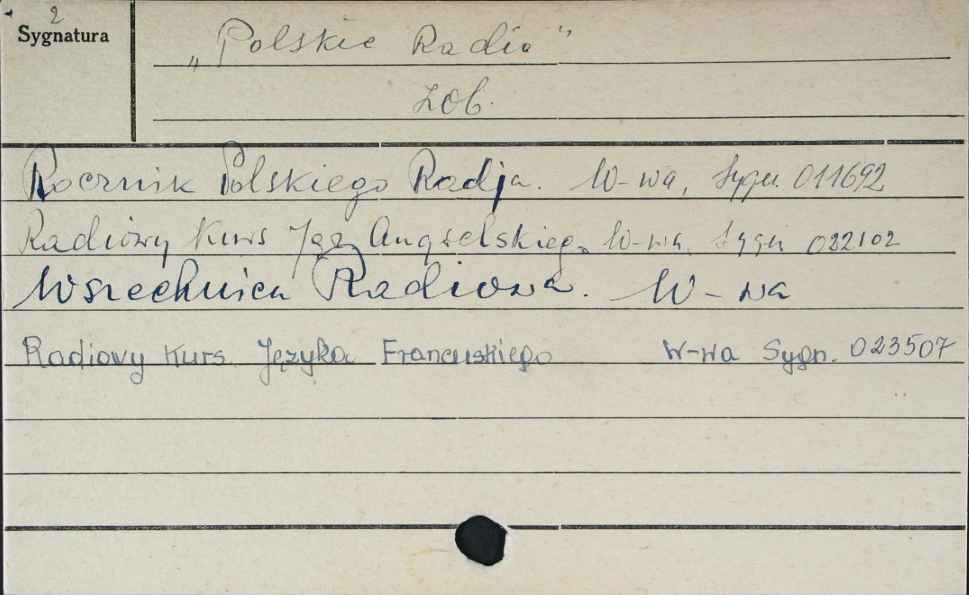 2
Sygnatura
„Polskie Radio”
zob.
Rocznik Polskiego Radja. W-wa, Sygn. 011692
Radiowy Kurs Jęz. Angielskiego W-wa, Sygn 022102
Wszechnica Radiowa. W-wa
Radiowy Kurs Języka Francuskiego W-wa Sygn. 023507